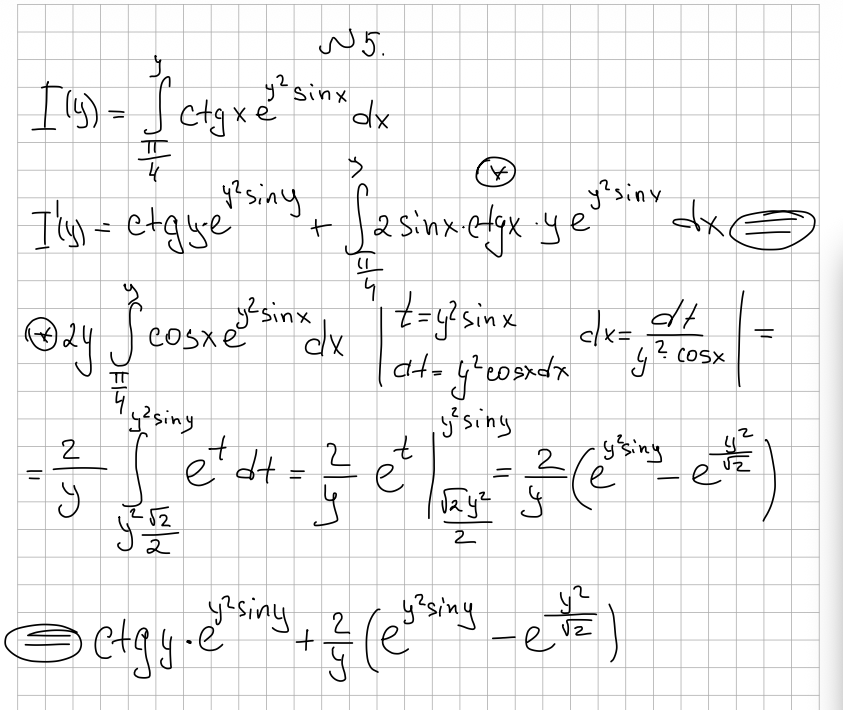 №5.
I(y) = ∫_{π/4}^{y} ctgx e^{y² sinx} dx
I'(y) = ctgy·e^{y² siny} + ∫_{π/4}^{y} 2 sinx·ctgx·y e^{y² sinx} dx ⊜
⊛ 2y ∫_{π/4}^{y} cosx e^{y² sinx} dx | t = y² sinx dt = y² cosx dx dx = dt/(y²·cosx) | =
= 2/y ∫_{y² √2/2}^{y² siny} e^t dt = 2/y e^t |_{√2y²/2}^{y² siny} = 2/y (e^{y² siny} - e^{y²/√2})
⊜ ctgy·e^{y² siny} + 2/y (e^{y² siny} - e^{y²/√2})